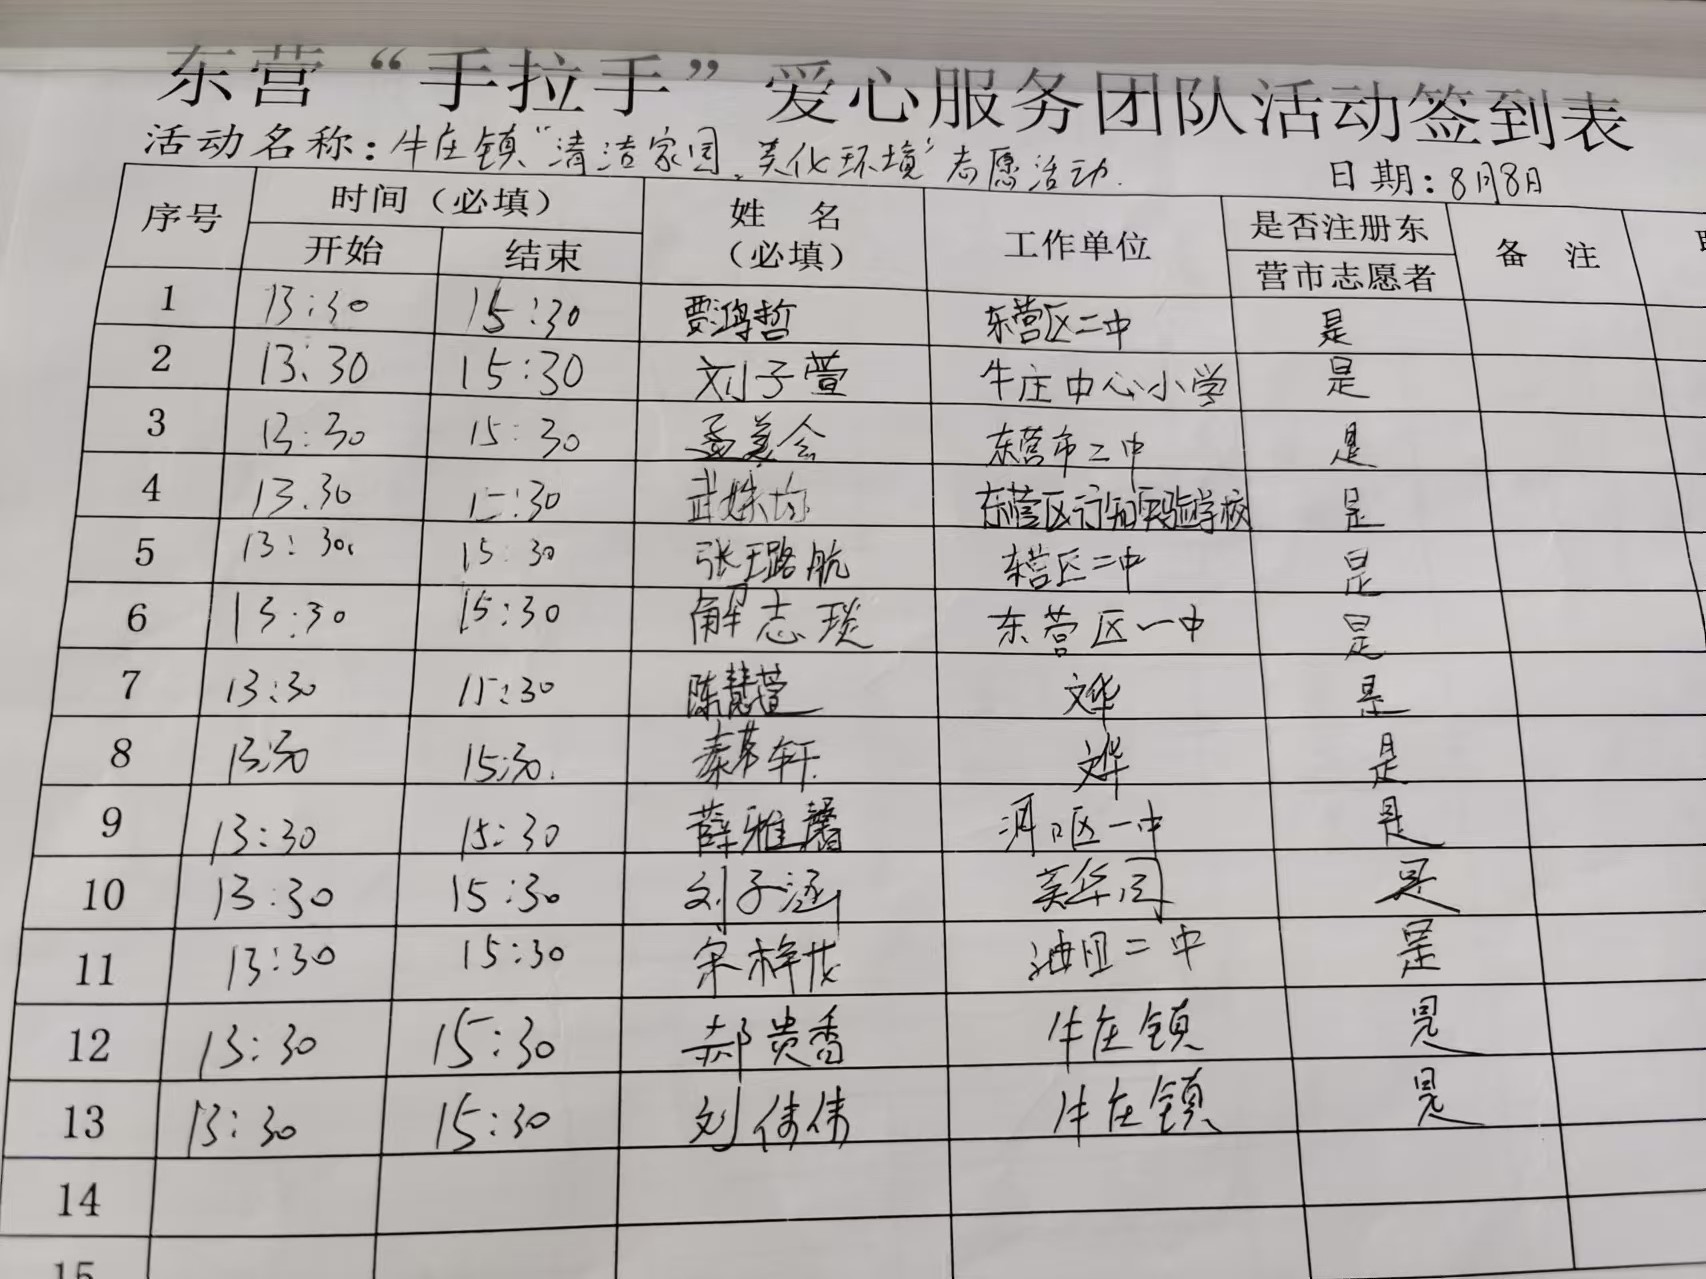 东营“手拉手”爱心服务团队活动签到表
活动名称：牛庄镇“清洁家园、美化环境”志愿活动.
日期：8月8日
序号 时间（必填） 姓 名 工作单位 是否注册东 备 注
开始 结束 （必填） 营市志愿者
1 13:30 15:30 贾鸿哲 东营区二中 是
2 13:30 15:30 刘子萱 牛庄中心小学 是
3 13:30 15:30 孟美会 东营市二中 是
4 13.30 15:30 武姝均 东营区行知实验学校 是
5 13:30. 15:30 张璐航 东营区二中 是
6 13:30 15:30 解志琰 东营区一中 是
7 13:30 15:30 陈慧萱 文华 是
8 13:30 15:30. 秦 轩 文华 是
9 13:30 15:30 薛雅馨 河口区一中 是
10 13:30 15:30 刘子涵 英华园 是
11 13:30 15:30 宋梓 油田二中 是
12 13:30 15:30 郝贵香 牛庄镇 是
13 13:30 15:30 刘伟伟 牛庄镇 是
14
15